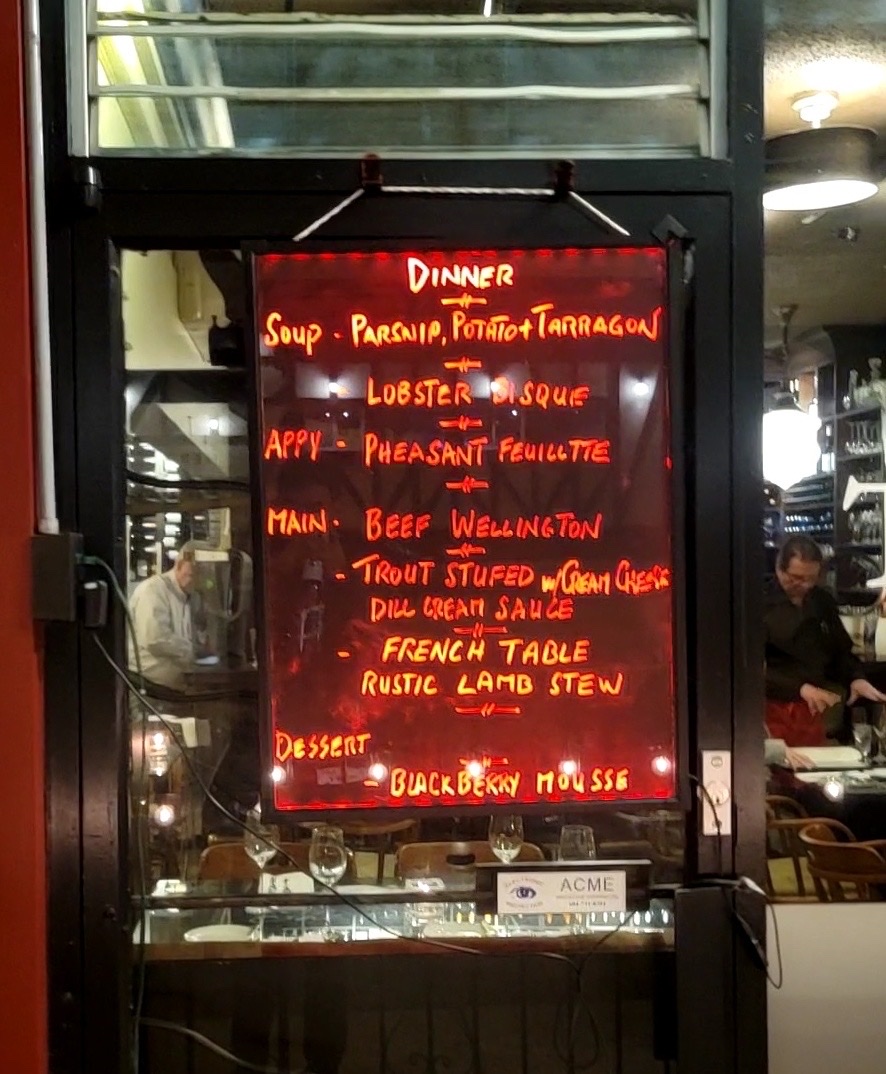 DINNER
Soup - PARSNIP, POTATO + TARRAGON
- LOBSTER BISQUE
APPY - PHEASANT FEUILLTTE
MAIN - BEEF WELLINGTON
- TROUT STUFED w/CREAM CHEESE
DILL CREAM SAUCE
- FRENCH TABLE
RUSTIC LAMB STEW
DESSERT
- BLACKBERRY MOUSSE
ACME